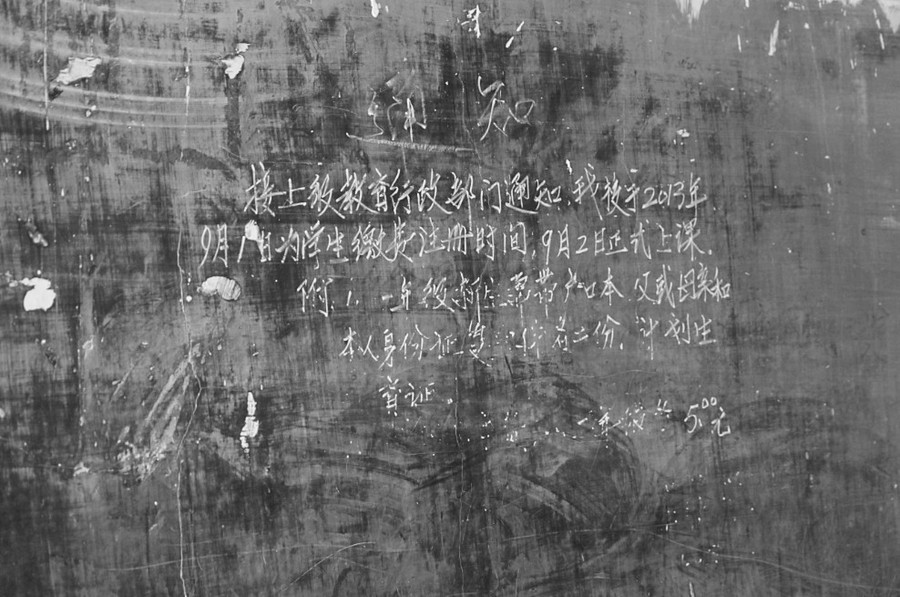 通知
接上级教育行政部门通知，我校于2013年
9月1日为学生缴费注册时间，9月2日正式上课。
附1.一年级新生需带户口本、父或母亲和
本人身份证复印件各二份，计划生
育证。
一年级 500元